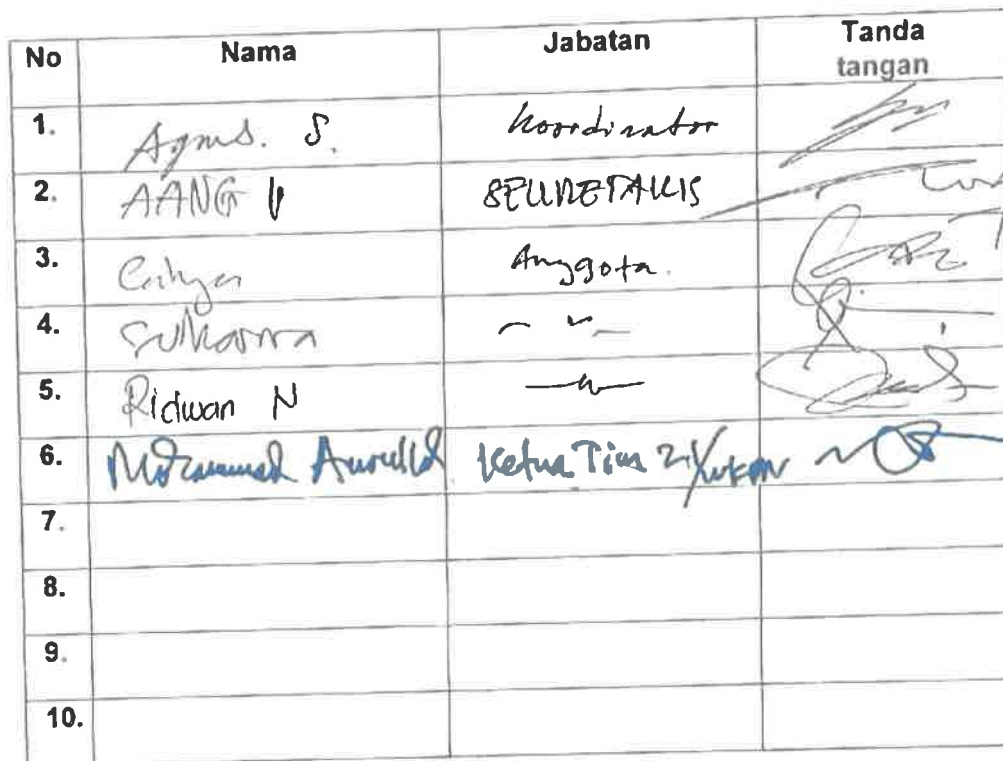 No Nama Jabatan Tanda
tangan
1. Agus. S. Koordinator
2. AANG SEKRETARIS
3. Cahya Anggota.
4. Sukarna
5. Ridwan N
6. Mohammad Ketua Tim
7.
8.
9.
10.